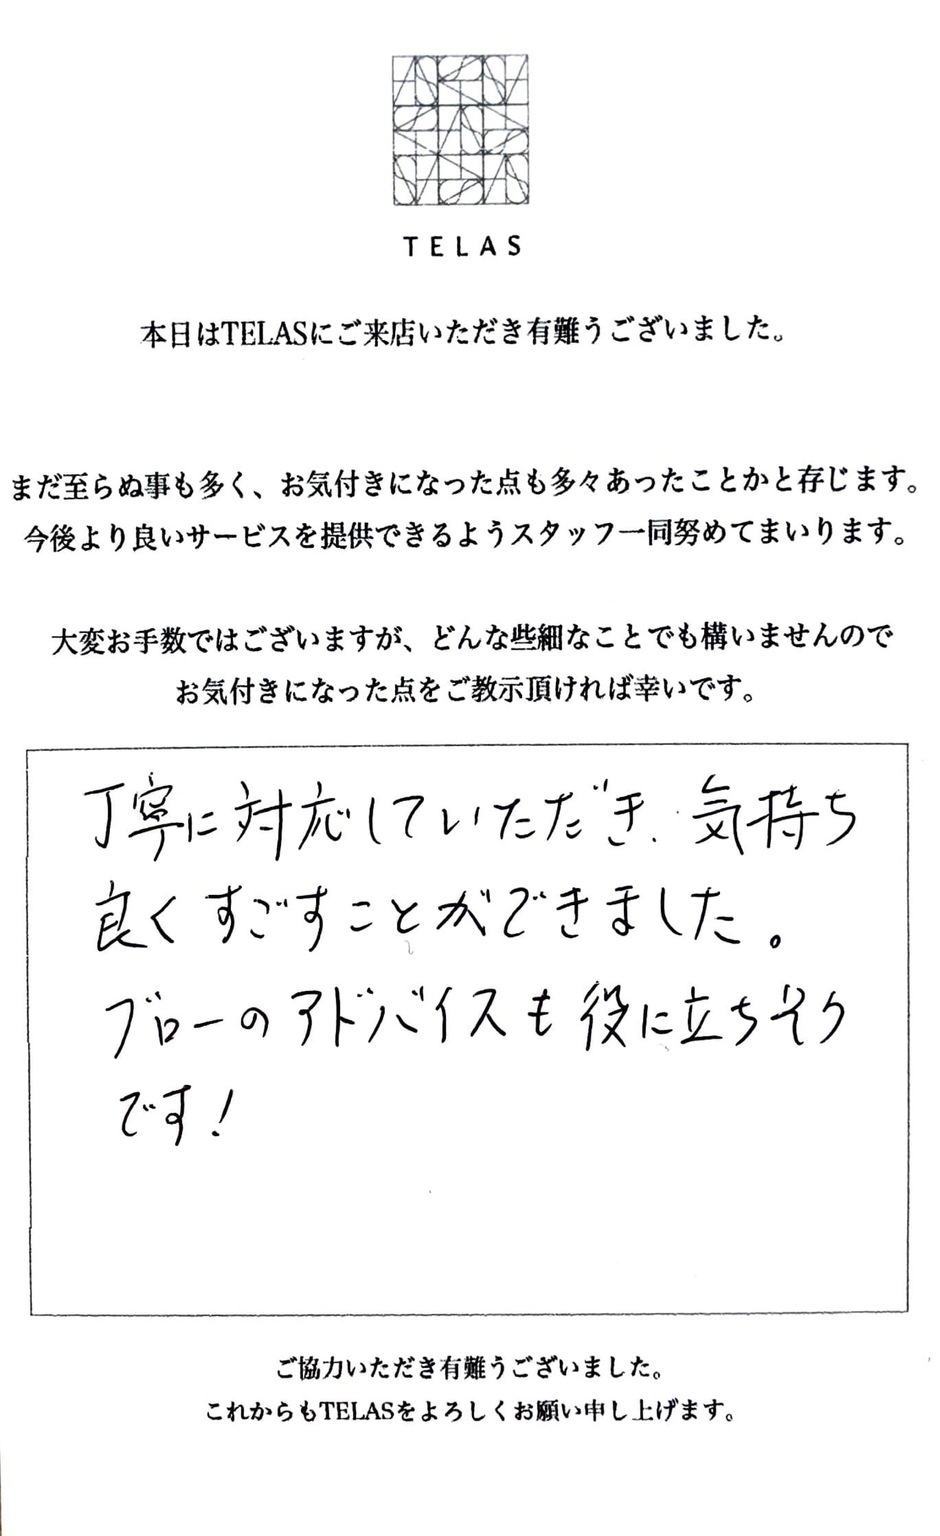 TELAS
本日はTELASにご来店いただき有難うございました。
まだ至らぬ事も多く、お気付きになった点も多々あったことかと存じます。
今後より良いサービスを提供できるようスタッフ一同努めてまいります。
大変お手数ではございますが、どんな些細なことでも構いませんので
お気付きになった点をご教示頂ければ幸いです。
丁寧に対応していただき、気持ち
良くすごすことができました。
ブローのアドバイスも役に立ちそう
です!
ご協力いただき有難うございました。
これからもTELASをよろしくお願い申し上げます。